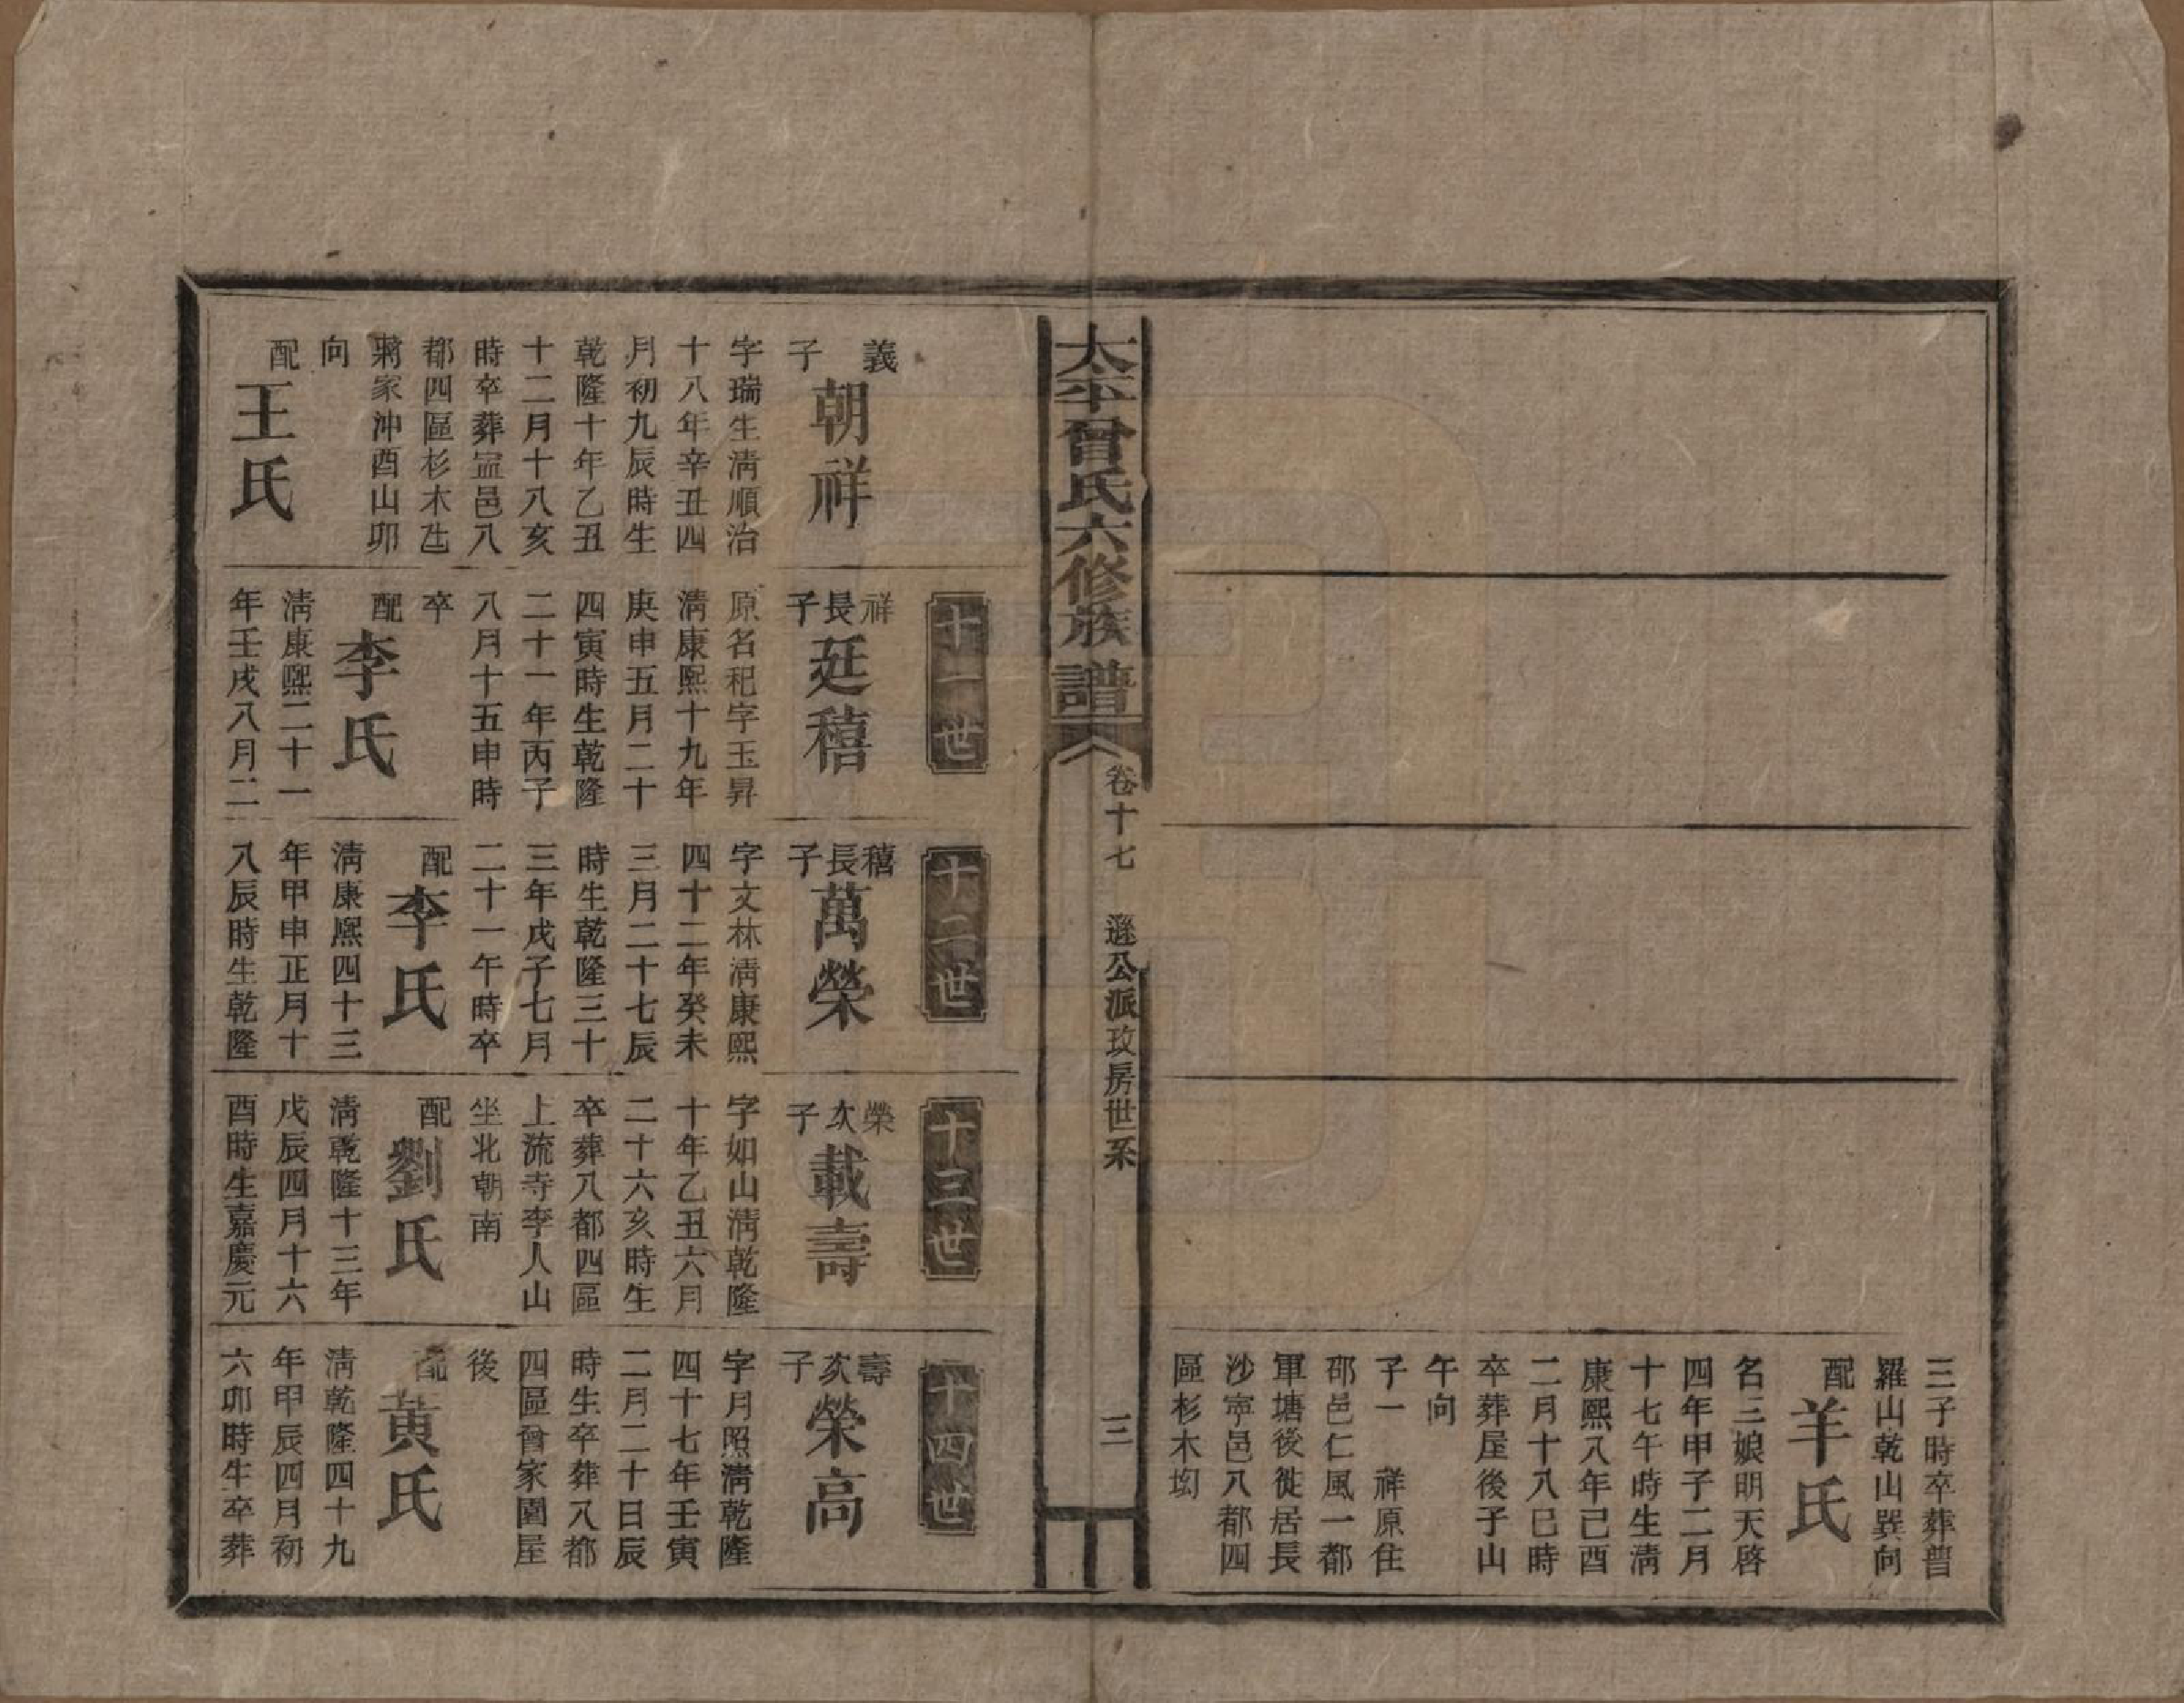 三子時卒葬普
羅山乾山巽向
配羊氏
名三娘明天啓
四年甲子二月
十七午時生淸
康熙八年己酉
二月十八巳時
卒葬屋後子山
午向
子一　祥原住
邵邑仁風一都
軍塘後徙居長
沙寧邑八都四
區杉木㘭
太平曾氏六修族譜
卷十七　遜公派玫房世系
三
義子朝祥
字瑞生淸順治
十八年辛丑四
月初九辰時生
乾隆十年乙丑
十二月十八亥
時卒葬寍邑八
都四區杉木
蔣家沖酉山卯
向
配王氏
十一世
祥長子廷禧
原名祀字玉昇
淸康熙十九年
庚申五月二十
四寅時生乾隆
二十一年丙子
八月十五申時
卒
配李氏
淸康熙二十一
年壬戌八月二
十二世
禧長子萬榮
字文林淸康熙
四十二年癸未
三月二十七辰
時生乾隆三十
三年戊子七月
二十一午時卒
配李氏
淸康熙四十三
年甲申正月十
八辰時生乾隆
十三世
榮次子載壽
字如山淸乾隆
十年乙丑六月
二十六亥時生
卒葬八都四區
上流寺李人山
坐北朝南
配劉氏
淸乾隆十三年
戊辰四月十六
酉時生嘉慶元
十四世
壽次子榮高
字月照淸乾隆
四十七年壬寅
二月二十日辰
時生卒葬八都
四區曾家園屋
後
配黃氏
淸乾隆四十九
年甲辰四月初
六卯時生卒葬